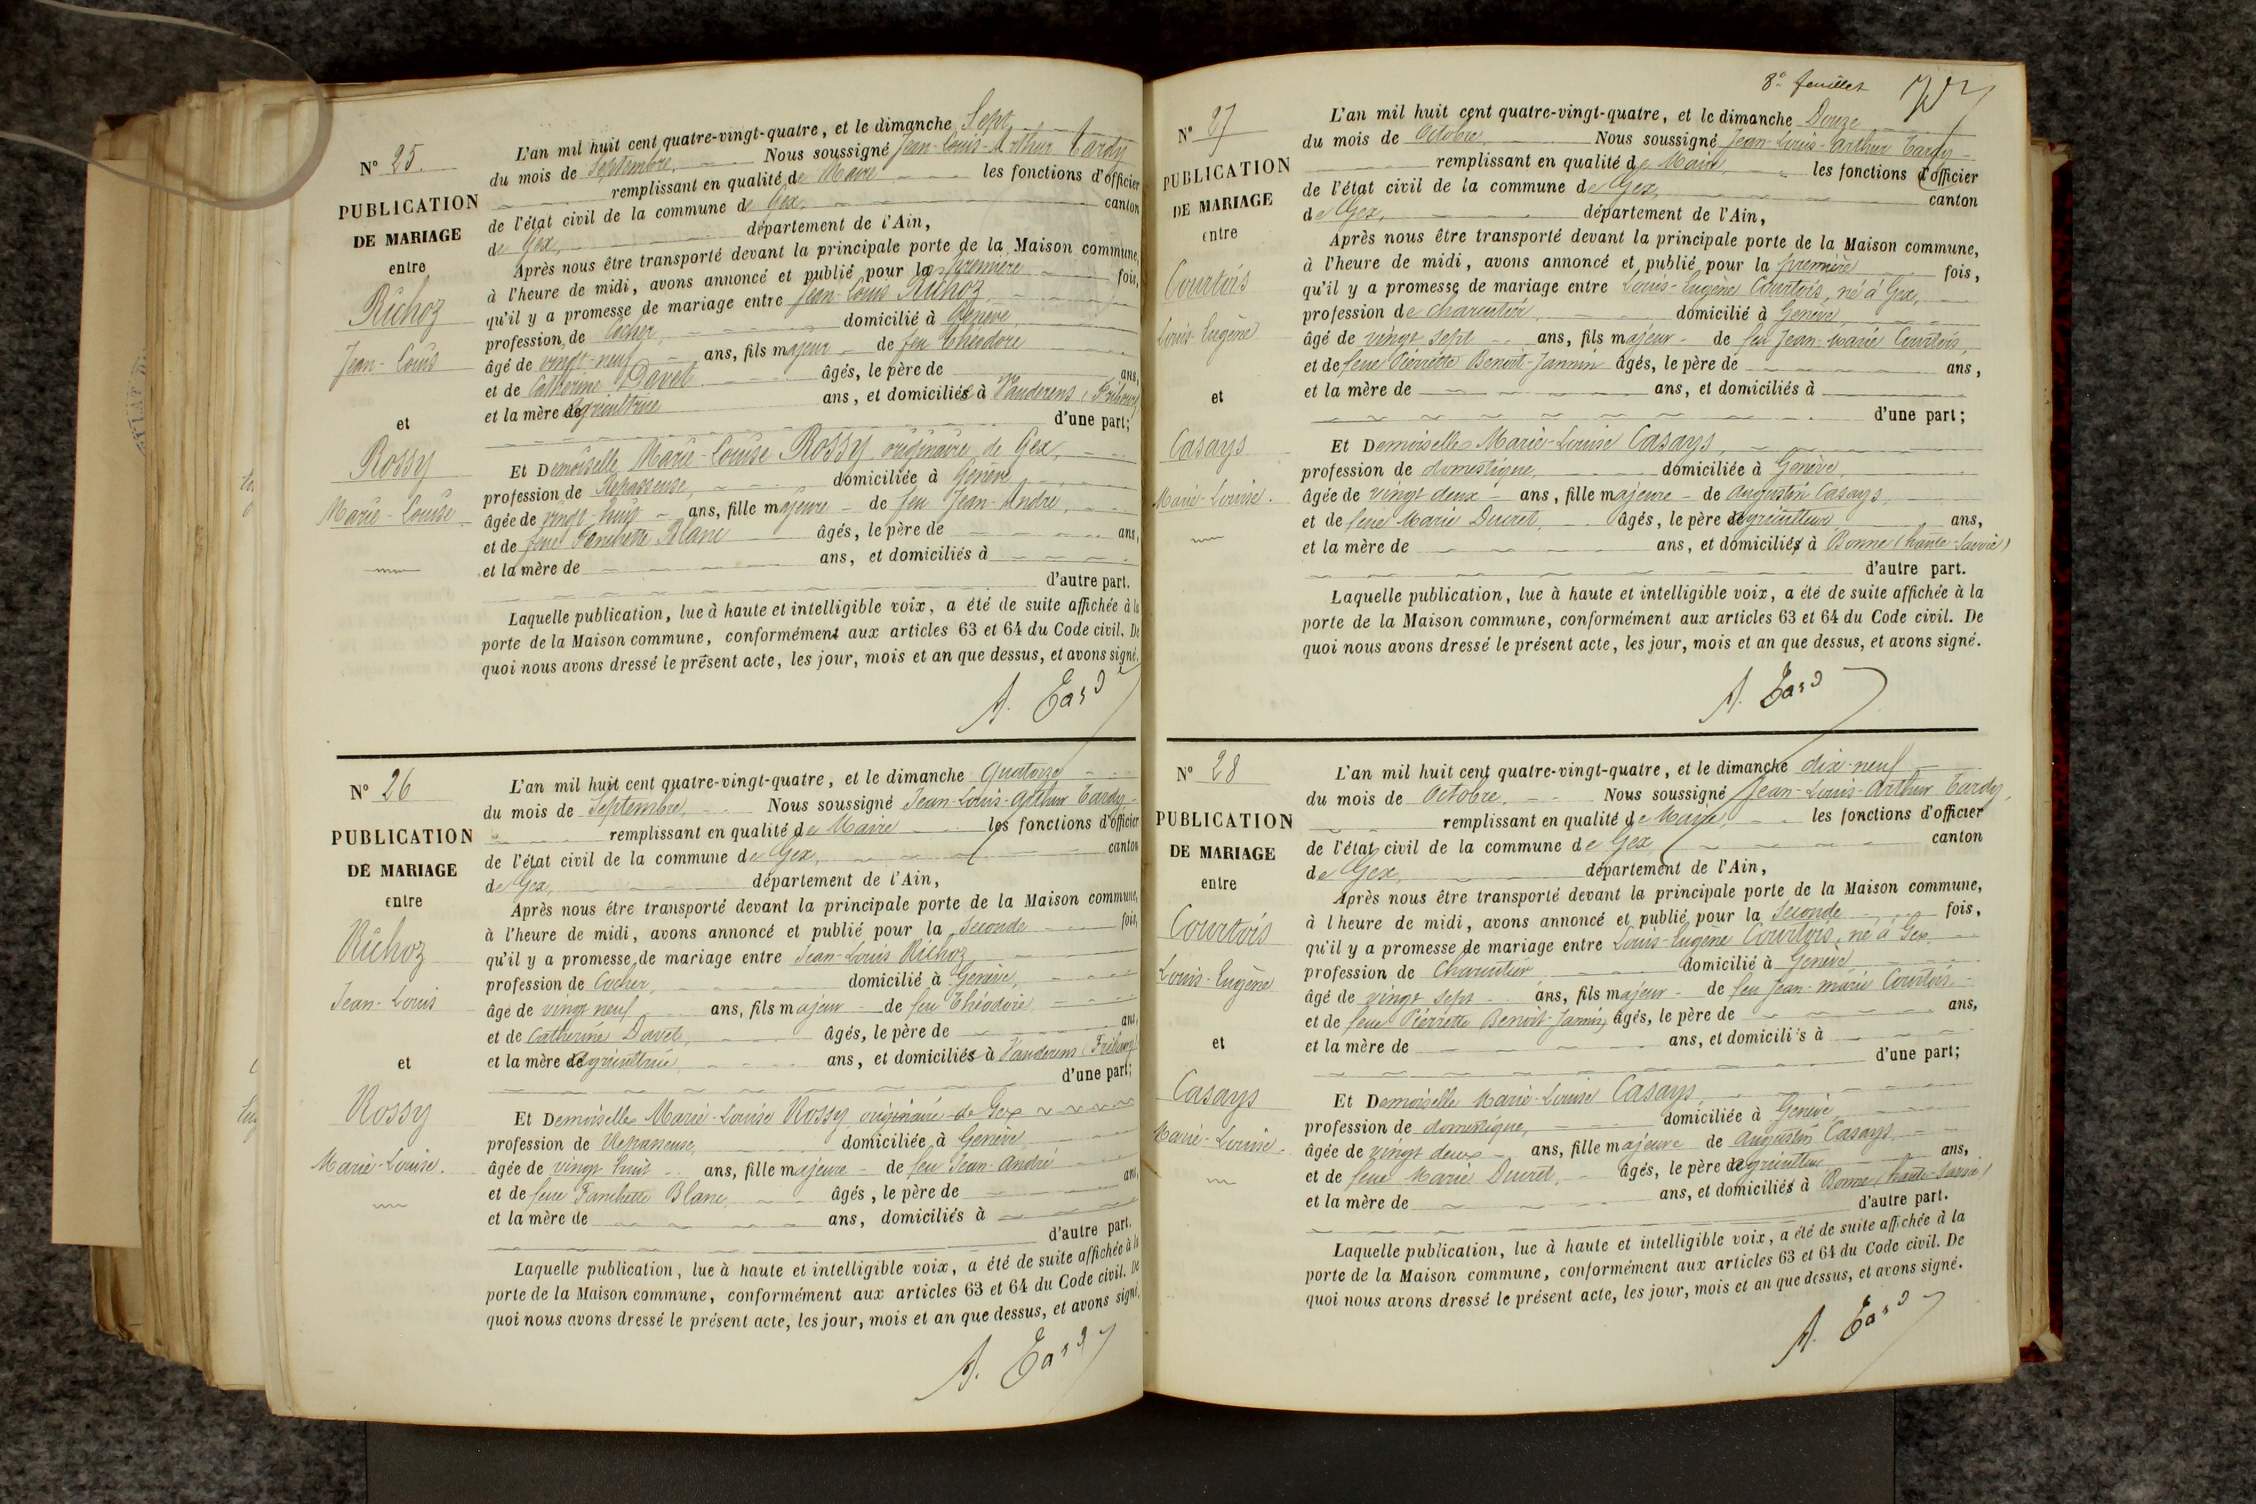 N° 25.
PUBLICATION
DE MARIAGE
entre
Richoz
Jean-Louis
et
Rossy
Marie-Louise
L'an mil huit cent quatre-vingt-quatre, et le dimanche Sept
du mois de Septembre, Nous soussigné Jean-Louis-Arthur Tardy
remplissant en qualité de Maire les fonctions d'officier
de l'état civil de la commune de Gex, canton
de Gex, département de l'Ain,
Après nous être transporté devant la principale porte de la Maison commune,
à l'heure de midi, avons annoncé et publié pour la première fois,
qu'il y a promesse de mariage entre Jean-Louis Richoz,
profession de Cocher, domicilié à Genève,
âgé de vingt-neuf ans, fils majeur de feu Théodore
et de Catherine Davet âgés, le père de ans,
et la mère de agricultrice ans, et domiciliés à Vauderens (Fribourg)
d'une part;
Et Demoiselle Marie-Louise Rossy originaire de Gex,
profession de Repasseuse, domiciliée à Genève
âgée de vingt-huit ans, fille majeure de feu Jean-André,
et de feue Fanchette Blanc âgés, le père de ans,
et la mère de ans, et domiciliés à
d'autre part.
Laquelle publication, lue à haute et intelligible voix, a été de suite affichée à la
porte de la Maison commune, conformément aux articles 63 et 64 du Code civil. De
quoi nous avons dressé le présent acte, les jour, mois et an que dessus, et avons signé.
A. Tardy
N° 26
PUBLICATION
DE MARIAGE
entre
Richoz
Jean-Louis
et
Rossy
Marie-Louise.
L'an mil huit cent quatre-vingt-quatre, et le dimanche Quatorze
du mois de Septembre, Nous soussigné Jean-Louis-Arthur Tardy
remplissant en qualité de Maire les fonctions d'officier
de l'état civil de la commune de Gex, canton
de Gex, département de l'Ain,
Après nous être transporté devant la principale porte de la Maison commune,
à l'heure de midi, avons annoncé et publié pour la seconde fois,
qu'il y a promesse de mariage entre Jean-Louis Richoz
profession de Cocher, domicilié à Genève,
âgé de vingt neuf ans, fils majeur de feu Théodore
et de Catherine Davet, âgés, le père de ans,
et la mère de agricultrice, ans, et domiciliés à Vauderens (Fribourg)
d'une part;
Et Demoiselle Marie-Louise Rossy originaire de Gex
profession de Repasseuse, domiciliée à Genève
âgée de vingt-huit ans, fille majeure de feu Jean-André
et de feue Fanchette Blanc, âgés, le père de ans,
et la mère de ans, domiciliés à
d'autre part.
Laquelle publication, lue à haute et intelligible voix, a été de suite affichée à la
porte de la Maison commune, conformément aux articles 63 et 64 du Code civil. De
quoi nous avons dressé le présent acte, les jour, mois et an que dessus, et avons signé.
A. Tardy
8e feuillet
N° 27
PUBLICATION
DE MARIAGE
entre
Courtois
Louis-Eugène
et
Casays
Marie-Louise.
L'an mil huit cent quatre-vingt-quatre, et le dimanche Douze
du mois de Octobre, Nous soussigné Jean-Louis-Arthur Tardy
remplissant en qualité de Maire les fonctions d'officier
de l'état civil de la commune de Gex, canton
de Gex, département de l'Ain,
Après nous être transporté devant la principale porte de la Maison commune,
à l'heure de midi, avons annoncé et publié pour la première fois,
qu'il y a promesse de mariage entre Louis-Eugène Courtois, né à Gex,
profession de charcutier, domicilié à Genève,
âgé de vingt sept ans, fils majeur de feu Jean-Marie Courtois,
et de feue Pierrette Benoit-Jannin âgés, le père de ans,
et la mère de ans, et domiciliés à
d'une part;
Et Demoiselle Marie-Louise Casays,
profession de domestique, domiciliée à Genève
âgée de vingt deux ans, fille majeure de Augustin Casays,
et de feue Marie Ducret, âgés, le père de agriculteur ans,
et la mère de ans, et domiciliés à Bonne (haute-Savoie)
d'autre part.
Laquelle publication, lue à haute et intelligible voix, a été de suite affichée à la
porte de la Maison commune, conformément aux articles 63 et 64 du Code civil. De
quoi nous avons dressé le présent acte, les jour, mois et an que dessus, et avons signé.
A. Tardy
N° 28
PUBLICATION
DE MARIAGE
entre
Courtois
Louis-Eugène
et
Casays
Marie-Louise.
L'an mil huit cent quatre-vingt-quatre, et le dimanche dix-neuf
du mois de Octobre, Nous soussigné Jean-Louis-Arthur Tardy,
remplissant en qualité de Maire, les fonctions d'officier
de l'état civil de la commune de Gex canton
de Gex, département de l'Ain,
Après nous être transporté devant la principale porte de la Maison commune,
à l'heure de midi, avons annoncé et publié pour la seconde fois,
qu'il y a promesse de mariage entre Louis-Eugène Courtois, né à Gex
profession de Charcutier domicilié à Genève
âgé de vingt sept ans, fils majeur de feu Jean-Marie Courtois,
et de feue Pierrette Benoit-Jannin, âgés, le père de ans,
et la mère de ans, et domiciliés à
d'une part;
Et Demoiselle Marie-Louise Casays,
profession de domestique, domiciliée à Genève,
âgée de vingt deux ans, fille majeure de Augustin Casays,
et de feue Marie Ducret, âgés, le père de agriculteur ans,
et la mère de ans, et domiciliés à Bonne (haute-Savoie)
d'autre part.
Laquelle publication, lue à haute et intelligible voix, a été de suite affichée à la
porte de la Maison commune, conformément aux articles 63 et 64 du Code civil. De
quoi nous avons dressé le présent acte, les jour, mois et an que dessus, et avons signé.
A. Tardy